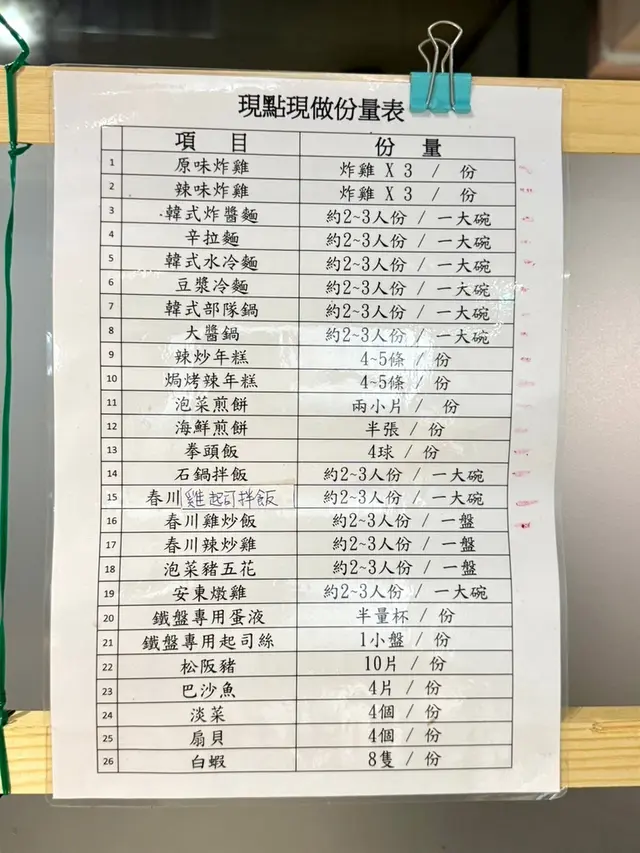 現點現做份量表
項目 份量
1 原味炸雞 炸雞 X 3 / 份
2 辣味炸雞 炸雞 X 3 / 份
3 韓式炸醬麵 約2~3人份 / 一大碗
4 辛拉麵 約2~3人份 / 一大碗
5 韓式水冷麵 約2~3人份 / 一大碗
6 豆漿冷麵 約2~3人份 / 一大碗
7 韓式部隊鍋 約2~3人份 / 一大碗
8 大醬鍋 約2~3人份 / 一大碗
9 辣炒年糕 4~5條 / 份
10 焗烤辣年糕 4~5條 / 份
11 泡菜煎餅 兩小片 / 份
12 海鮮煎餅 半張 / 份
13 拳頭飯 4球 / 份
14 石鍋拌飯 約2~3人份 / 一大碗
15 春川雞起司拌飯 約2~3人份 / 一大碗
16 春川雞炒飯 約2~3人份 / 一盤
17 春川辣炒雞 約2~3人份 / 一盤
18 泡菜豬五花 約2~3人份 / 一盤
19 安東燉雞 約2~3人份 / 一大碗
20 鐵盤專用蛋液 半量杯 / 份
21 鐵盤專用起司絲 1小盤 / 份
22 松阪豬 10片 / 份
23 巴沙魚 4片 / 份
24 淡菜 4個 / 份
25 扇貝 4個 / 份
26 白蝦 8隻 / 份